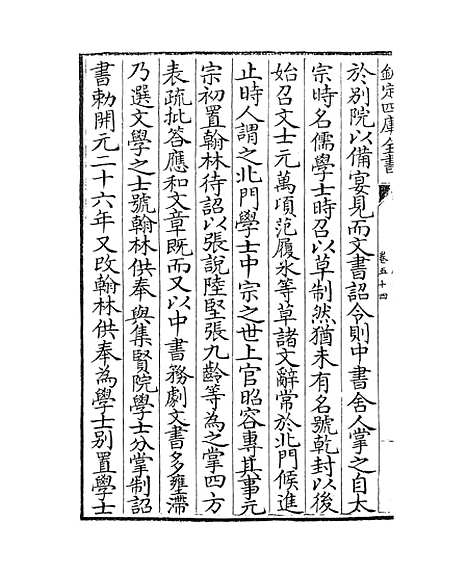 欽定四庫全書
卷五十四
於別院以備宴見而文書詔令則中書舍人掌之自太
宗時名儒學士時召以草制然猶未有名號乾封以後
始召文士元萬頃范履冰等草諸文辭常於北門候進
止時人謂之北門學士中宗之世上官昭容專其事元
宗初置翰林待詔以張說陸堅張九齡等為之掌四方
表疏批答應和文章既而又以中書務劇文書多壅滯
乃選文學之士號翰林供奉與集賢院學士分掌制詔
書勅開元二十六年又改翰林供奉為學士別置學士